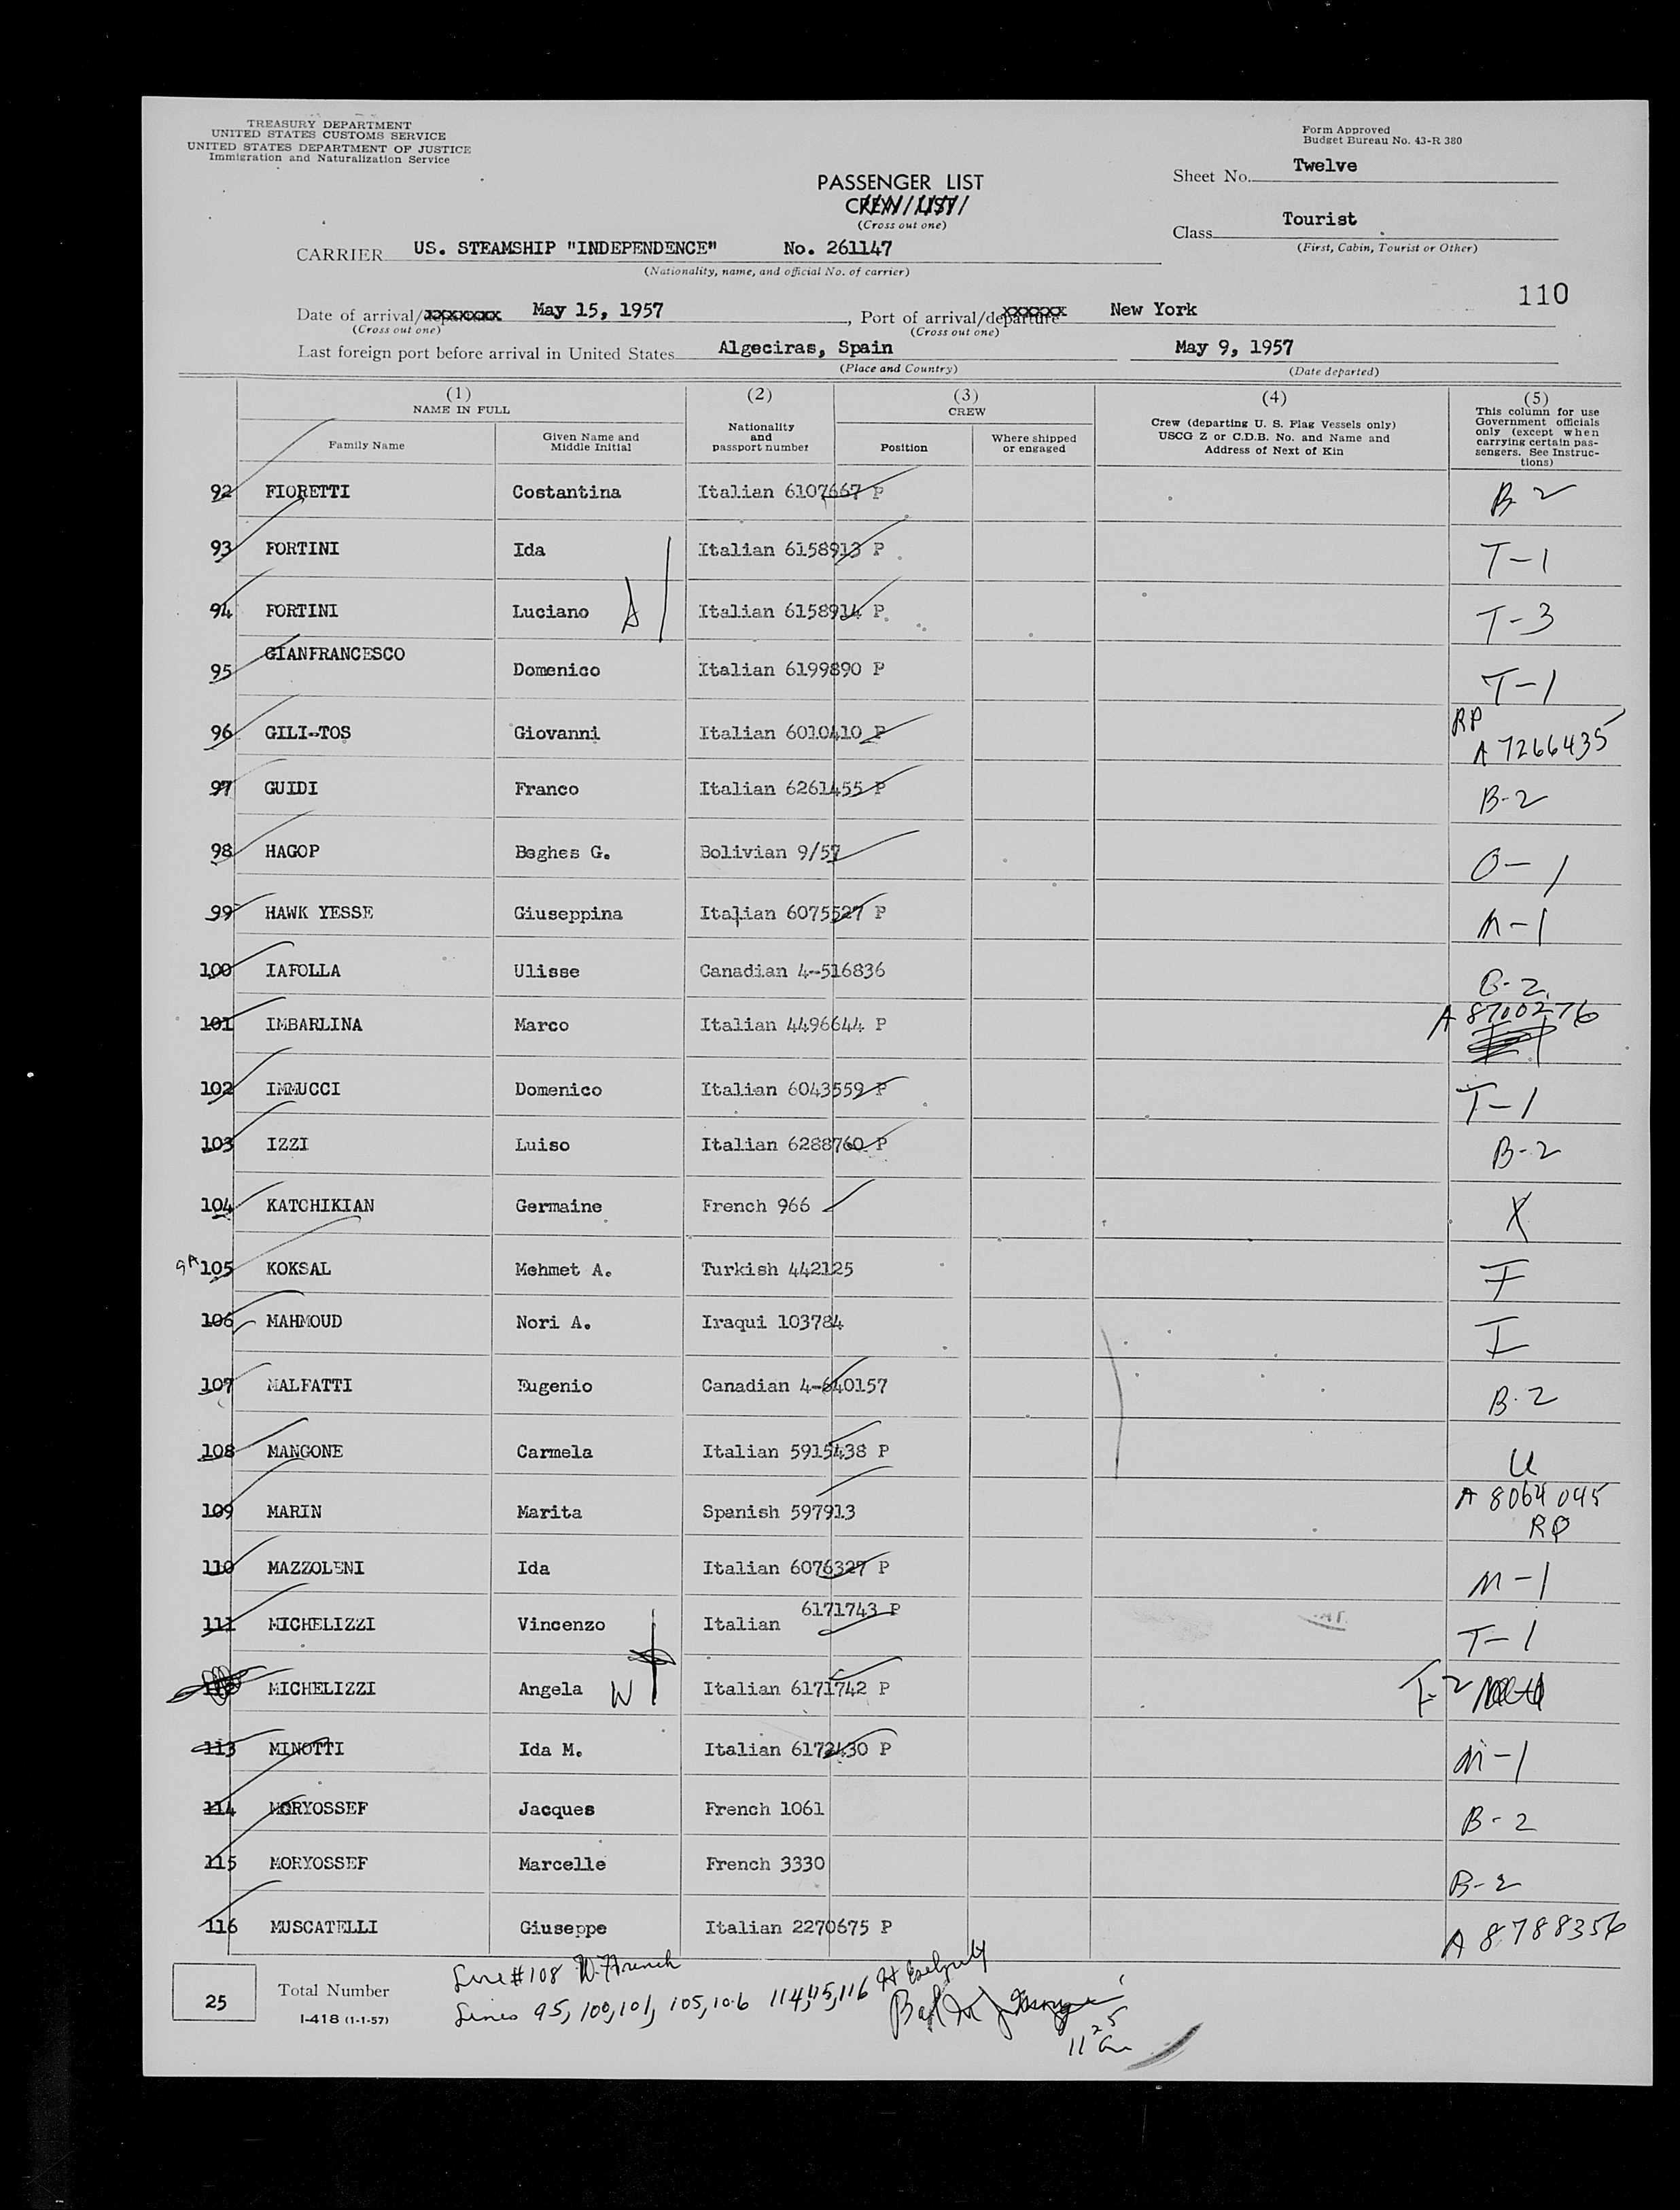 TREASURY DEPARTMENT
UNITED STATES CUSTOMS SERVICE
UNITED STATES DEPARTMENT OF JUSTICE
Immigration and Naturalization Service
Form Approved
Budget Bureau No. 43-R 380
Sheet No. Twelve
PASSENGER LIST
CREW LIST
(Cross out one)
Class Tourist
(First, Cabin, Tourist or Other)
CARRIER US. STEAMSHIP "INDEPENDENCE" No. 261147
(Nationality, name, and official No. of carrier)
110
Date of arrival/departure May 15, 1957, Port of arrival/departure New York
(Cross out one) (Cross out one)
Last foreign port before arrival in United States Algeciras, Spain May 9, 1957
(Place and Country) (Date departed)
(1) NAME IN FULL
Family Name
Given Name and Middle Initial
(2) Nationality and passport number
(3) CREW
Position
Where shipped or engaged
(4) Crew (departing U. S. Flag Vessels only) USCG Z or C.D.B. No. and Name and Address of Next of Kin
(5) This column for use Government officials only (except when carrying certain passengers. See Instructions)
92 FIORETTI Costantina Italian 6107667 P B-2
93 FORTINI Ida Italian 6158913 P T-1
94 FORTINI Luciano Italian 6158914 P T-3
95 GIANFRANCESCO Domenico Italian 6199890 P T-1
96 GILI-TOS Giovanni Italian 6010410 P RP A 7266435
97 GUIDI Franco Italian 6261455 P B-2
98 HAGOP Beghes G. Bolivian 9/57 O-1
99 HAWK YESSE Giuseppina Italian 6075527 P M-1
100 IAFOLLA Ulisse Canadian 4-516836 B-2
101 IMBARLINA Marco Italian 4496644 P A 8700276
102 IMMUCCI Domenico Italian 6043559 P T-1
103 IZZI Luiso Italian 6288760 P B-2
104 KATCHIKIAN Germaine French 966 X
9A 105 KOKSAL Mehmet A. Turkish 442125 F
106 MAHMOUD Nori A. Iraqui 103784 I
107 MALFATTI Eugenio Canadian 4-640157 B-2
108 MANGONE Carmela Italian 5915438 P U
109 MARIN Marita Spanish 597913 A 8064045 RP
110 MAZZOLENI Ida Italian 6076327 P M-1
111 MICHELIZZI Vincenzo Italian 6171743 P T-1
MICHELIZZI Angela W Italian 6171742 P T-2
113 MINOTTI Ida M. Italian 6172430 P M-1
114 MORYOSSEF Jacques French 1061 B-2
115 MORYOSSEF Marcelle French 3330 B-2
116 MUSCATELLI Giuseppe Italian 2270675 P A 8788356
25 Total Number
I-418 (1-1-57)
Line #108
Lines 95, 100, 101, 105, 106 114, 115, 116
11 25